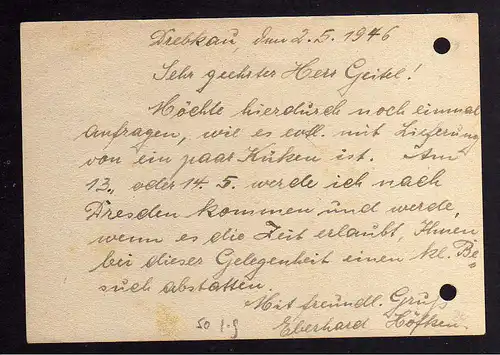 Drebkau, den 2. 5. 1946
Sehr geehrter Herr Geitel!
Möchte hierdurch noch einmal
anfragen, wie es evtl. mit Lieferung
von ein paar Küken ist. Am
13. oder 14. 5. werde ich nach
Dresden kommen und werde,
wenn es die Zeit erlaubt, Ihnen
bei dieser Gelegenheit einen kl. Be=
such abstatten.
Mit freundl. Gruß
Eberhard Höfken.